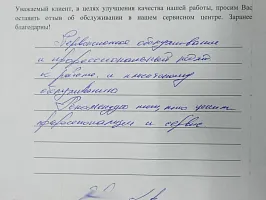 Уважаемый клиент, в целях улучшения качества нашей работы, просим Вас
оставить отзыв об обслуживании в нашем сервисном центре. Заранее
благодарны!
обслуживание
и профессиональный
к работе, и
обслуживанию
Рекомендую тем, кто ценит
профессионализм и сервис